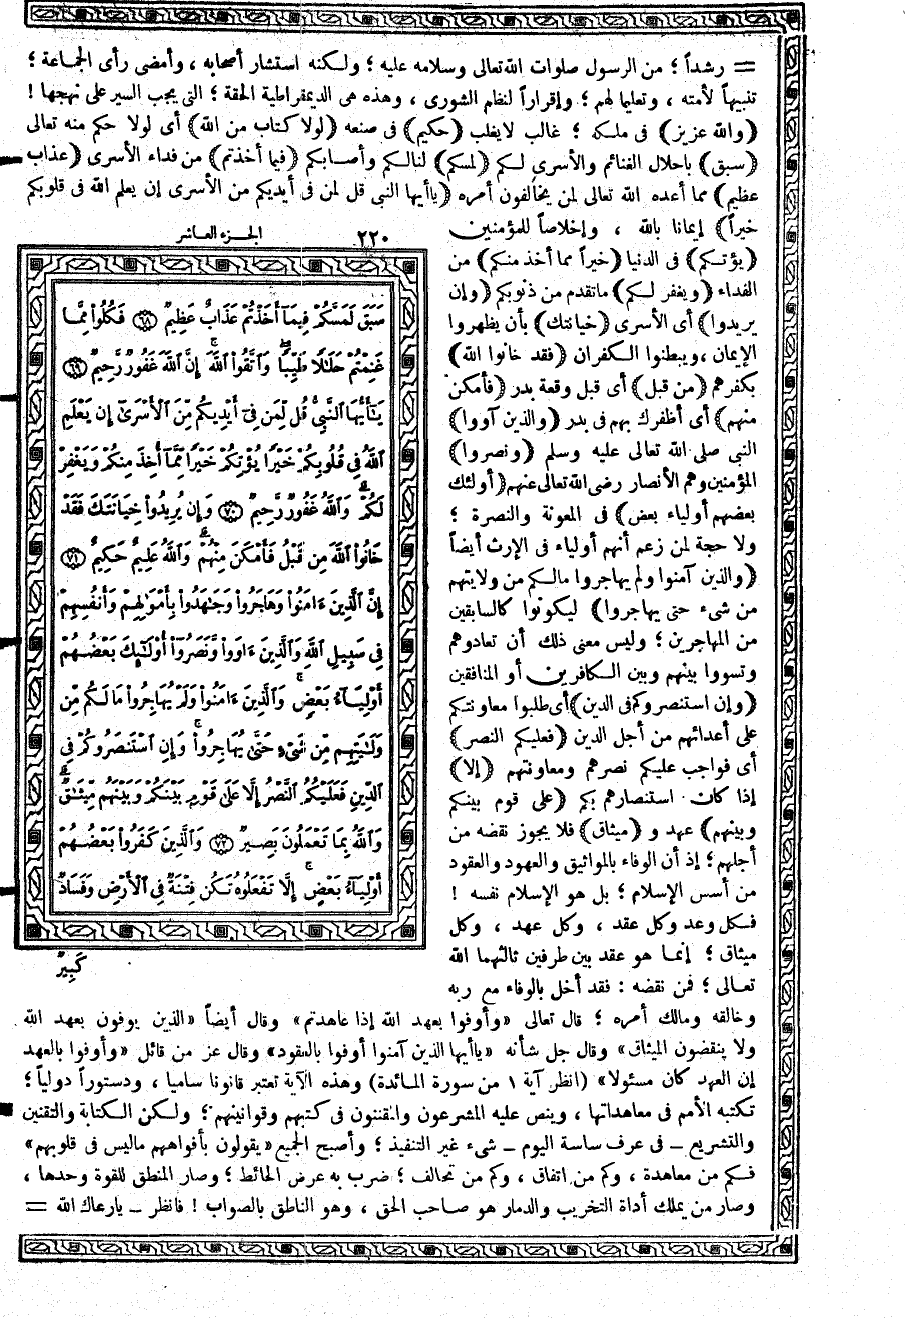 = رشداً ؛ من الرسول صلوات الله تعالى وسلامه عليه ؛ ولكنه استشار أصحابه ، وأمضى رأى الجماعة ؛
تنبيهاً لأمته ، وتعليما لهم ؛ وإقراراً لنظم الشورى ، وهذه هى الديمقراطية الحقة ؛ التى يجب السير على نهجها !
(والله عزيز) فى ملكه ؛ غالب لايغلب (حكيم) فى صنعه (لولا كتاب من الله) أى لولا حكم منه تعالى
(سبق) باحلال الغنائم والأسرى لكم (لمسكم) لنالكم وأصابكم (فيما أخذتم) من فداء الأسرى (عذاب
عظيم) مما أعده الله تعالى لمن يخالفون أمره (ياأيها النبى قل لمن فى أيديكم من الأسرى إن يعلم الله فى قلوبكم
خيراً) إيمانا بالله ، وإخلاصاً للمؤمنين
(يؤتكم) فى الدنيا (خيراً مما أخذ منكم) من
الفداء (ويغفر لكم) ماتقدم من ذنوبكم (وإن
يريدوا) أى الأسرى (خيانتك) بأن يظهروا
الإيمان ،ويبطنوا الكفران (فقد خانوا الله)
بكفرهم (من قبل) أى قبل وقعة بدر (فأمكن
منهم) أى أظفرك بهم فى بدر (والذين آووا)
النبى صلى الله تعالى عليه وسلم (ونصروا)
المؤمنين وهم الأنصار رضى الله تعالى عنهم (أولئك
بعضهم أولياء بعض) فى المعونة والنصرة ؛
ولا حجة لمن زعم أنهم أولياء فى الإرث أيضاً
(والذين آمنوا ولم يهاجروا مالكم من ولايتهم
من شىء حتى يهاجروا) ليكونوا كالسابقين
من المهاجرين ؛ وليس معنى ذلك أن تعادوهم
وتسووا بينهم وبين الكافرين أو المنافقين
(وإن استنصروكم فى الدين) أى طلبوا معاونتكم
على أعدائهم من أجل الدين (فعليكم النصر)
أى فواجب عليكم نصرهم ومعاونتهم (إلا)
إذا كان استنصارهم بكم (على قوم بينكم
وبينهم) عهد و (ميثاق) فلا يجوز نقضه من
أجلهم ؛ إذ أن الوفاء بالمواثيق والعهود والعقود
من أسس الإسلام ؛ بل هو الإسلام نفسه !
فكل وعد وكل عقد ، وكل عهد ، وكل
ميثاق ؛ إنما هو عقد بين طرفين ثالثهما الله
تعالى ؛ فمن نقضه : فقد أخل بالوفاء مع ربه
٢٢٠ الجزء العاشر
سَبَقَ لَمَسَّكُمْ فِيمَآ أَخَذْتُمْ عَذَابٌ عَظِيمٌ ﴿٦٨﴾ فَكُلُوا۟ مِمَّا
غَنِمْتُمْ حَلَٰلًا طَيِّبًا وَٱتَّقُوا۟ ٱللَّهَ إِنَّ ٱللَّهَ غَفُورٌ رَّحِيمٌ ﴿٦٩﴾
يَٰٓأَيُّهَا ٱلنَّبِىُّ قُل لِّمَن فِىٓ أَيْدِيكُم مِّنَ ٱلْأَسْرَىٰٓ إِن يَعْلَمِ
ٱللَّهُ فِى قُلُوبِكُمْ خَيْرًا يُؤْتِكُمْ خَيْرًا مِّمَّآ أُخِذَ مِنكُمْ وَيَغْفِرْ
لَكُمْ وَٱللَّهُ غَفُورٌ رَّحِيمٌ ﴿٧٠﴾ وَإِن يُرِيدُوا۟ خِيَانَتَكَ فَقَدْ
خَانُوا۟ ٱللَّهَ مِن قَبْلُ فَأَمْكَنَ مِنْهُمْ وَٱللَّهُ عَلِيمٌ حَكِيمٌ ﴿٧١﴾
إِنَّ ٱلَّذِينَ ءَامَنُوا۟ وَهَاجَرُوا۟ وَجَٰهَدُوا۟ بِأَمْوَٰلِهِمْ وَأَنفُسِهِمْ
فِى سَبِيلِ ٱللَّهِ وَٱلَّذِينَ ءَاوَوا۟ وَّنَصَرُوٓا۟ أُو۟لَٰٓئِكَ بَعْضُهُمْ
أَوْلِيَآءُ بَعْضٍ وَٱلَّذِينَ ءَامَنُوا۟ وَلَمْ يُهَاجِرُوا۟ مَا لَكُم مِّن
وَلَٰيَتِهِم مِّن شَىْءٍ حَتَّىٰ يُهَاجِرُوا۟ وَإِنِ ٱسْتَنصَرُوكُمْ فِى
ٱلدِّينِ فَعَلَيْكُمُ ٱلنَّصْرُ إِلَّا عَلَىٰ قَوْمٍۭ بَيْنَكُمْ وَبَيْنَهُم مِّيثَٰقٌ
وَٱللَّهُ بِمَا تَعْمَلُونَ بَصِيرٌ ﴿٧٢﴾ وَٱلَّذِينَ كَفَرُوا۟ بَعْضُهُمْ
أَوْلِيَآءُ بَعْضٍ إِلَّا تَفْعَلُوهُ تَكُن فِتْنَةٌ فِى ٱلْأَرْضِ وَفَسَادٌ
كَبِيرٌ
وخالقه ومالك أمره ؛ قال تعالى «وأوفوا بعهد الله إذا عاهدتم» وقال أيضاً «الذين يوفون بعهد الله
ولا ينقضون الميثاق» وقال جل شأنه «ياأيها الذين آمنوا أوفوا بالعقود» وقال عز من قائل «وأوفوا بالعهد
إن العهد كان مسئولا» (انظر آية ١ من سورة المائدة) وهذه الآية تعتبر قانونا ساميا ، ودستوراً دولياً ؛
تكتبه الأمم فى معاهداتها ، وينص عليه المشرعون والمقننون فى كتبهم وقوانينهم ؛ ولكن الكتابة والتقنين
والتشريع ــ فى عرف ساسة اليوم ــ شىء غير التنفيذ ؛ وأصبح الجميع «يقولون بأفواههم ماليس فى قلوبهم»
فكم من معاهدة ، وكم من اتفاق ، وكم من تحالف ؛ ضرب به عرض الحائط ؛ وصار المنطق للقوة وحدها ،
وصار من يملك أداة التخريب والدمار هو صاحب الحق ، وهو الناطق بالصواب ! فانظر ــ يارعاك الله =